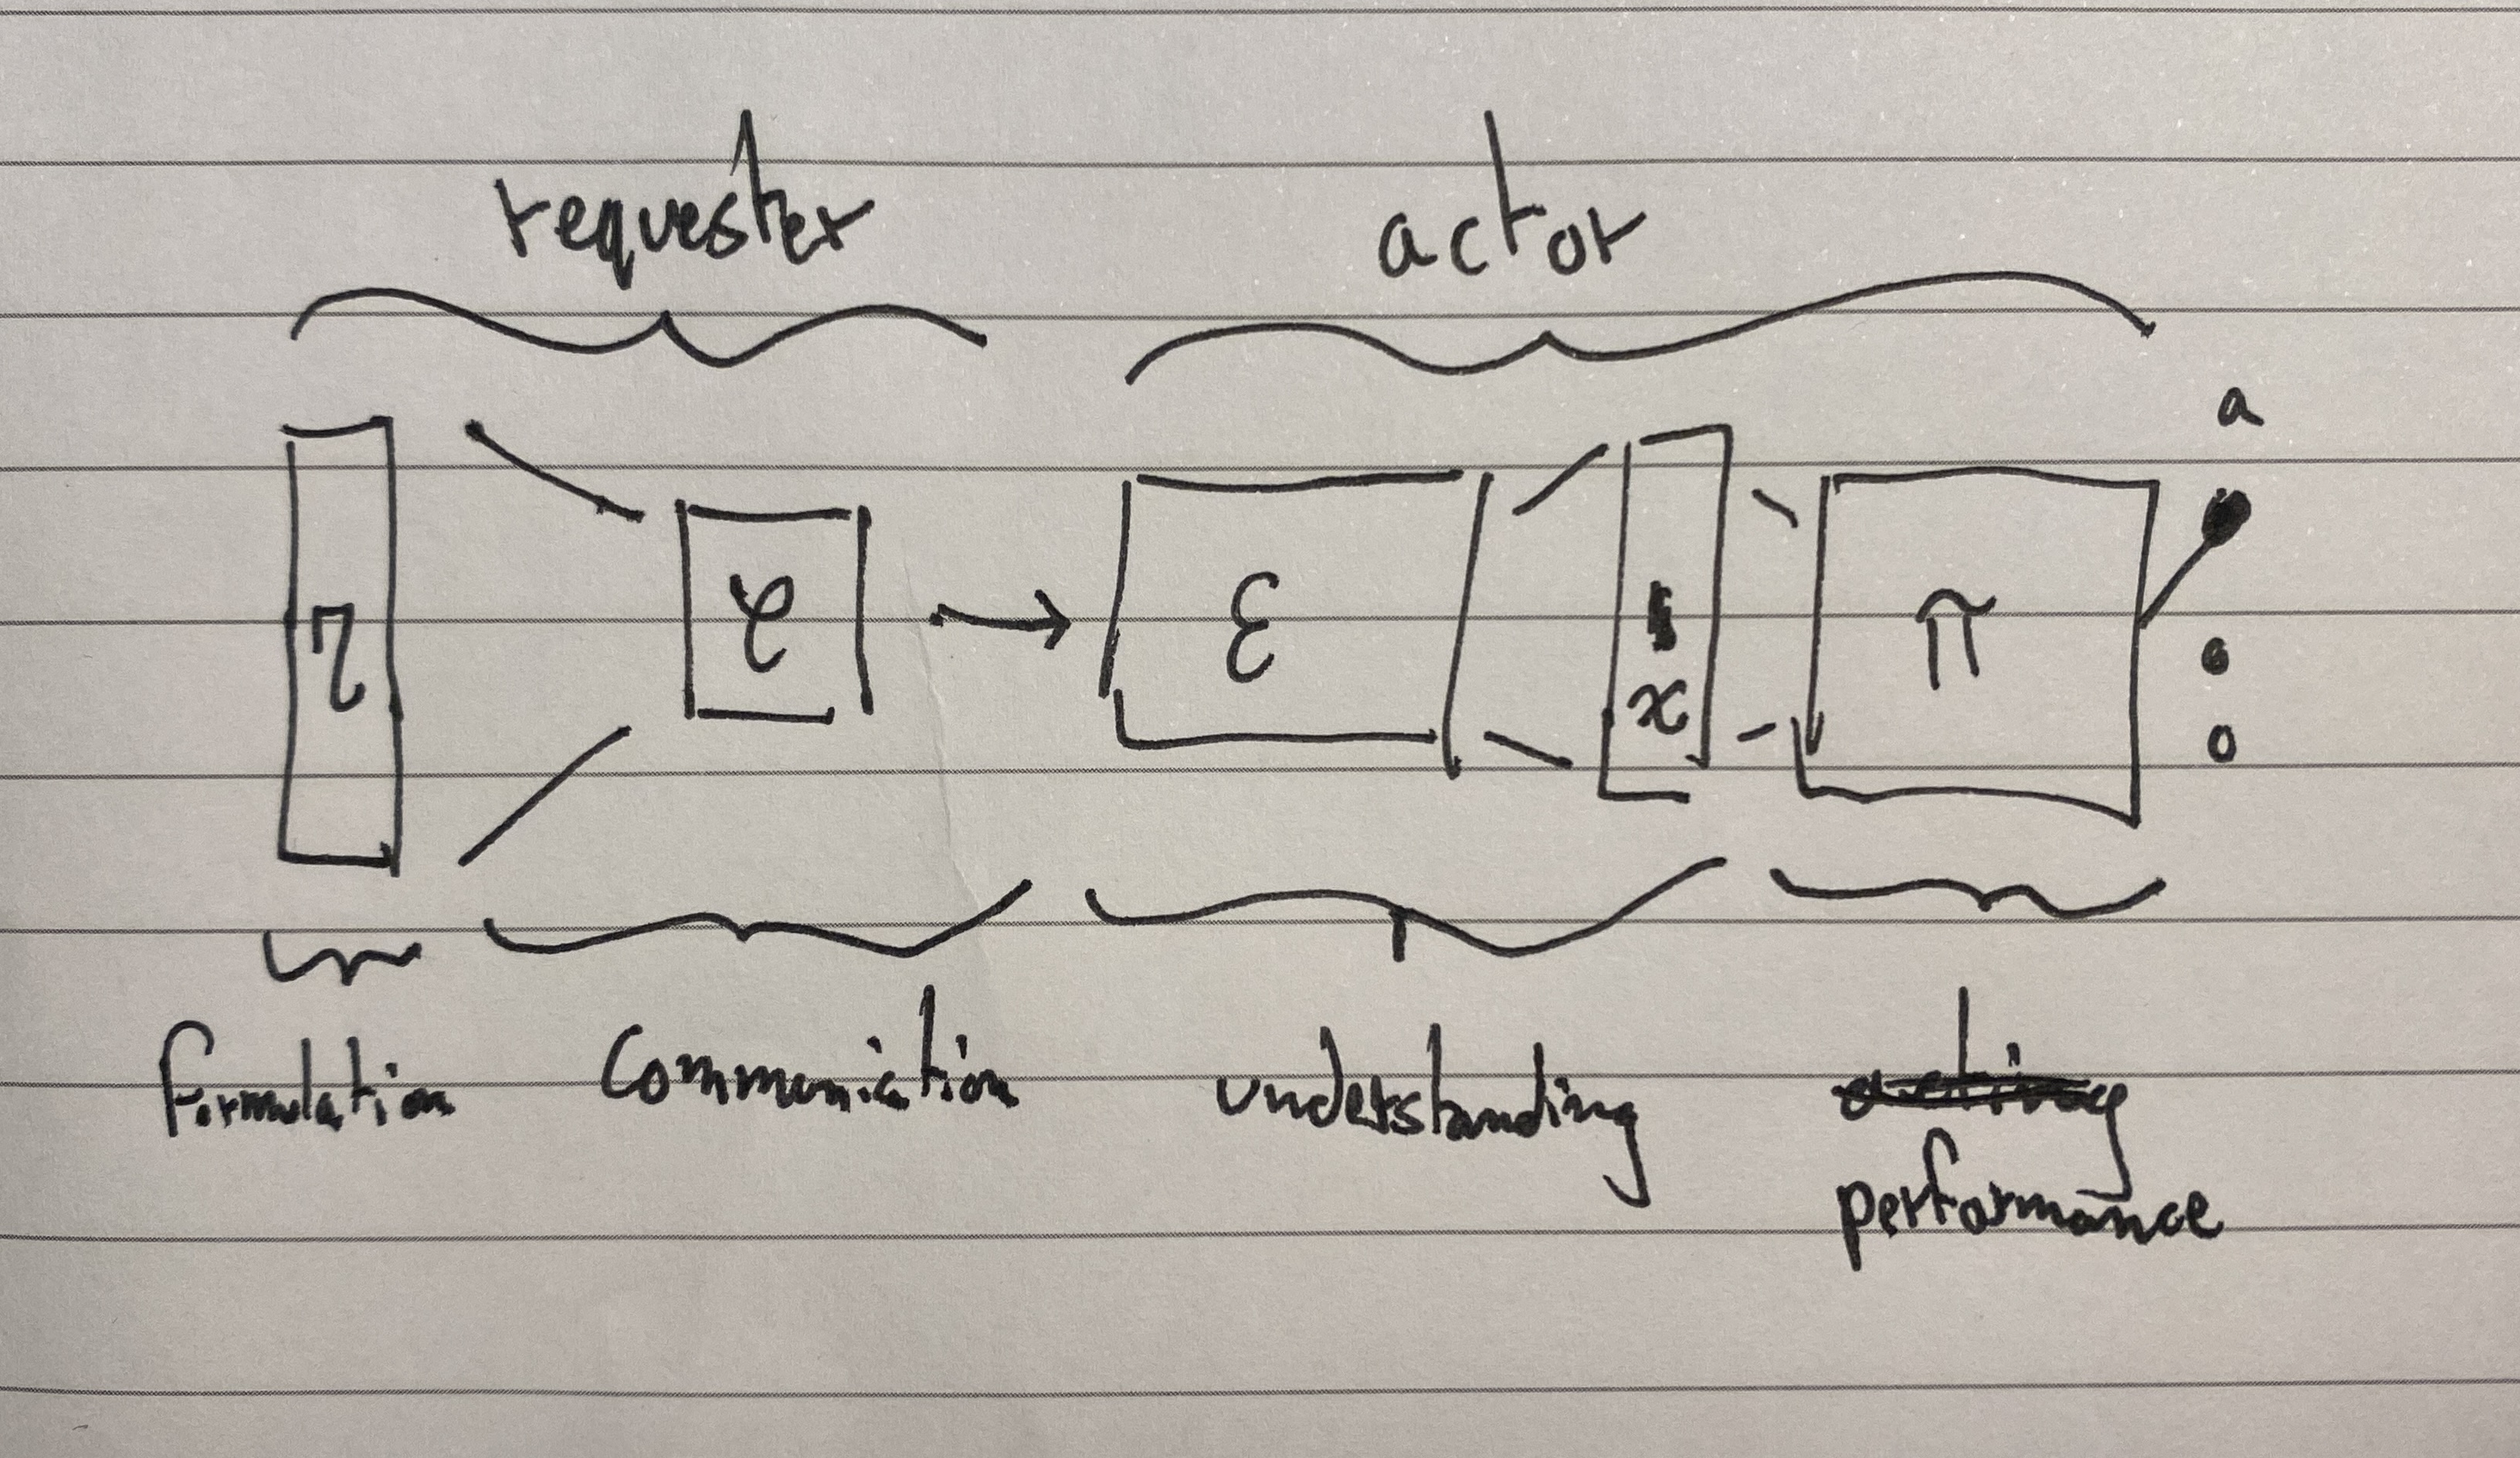 requester actor
a
η φ ε x π
formulation Communiction understanding acting
performance